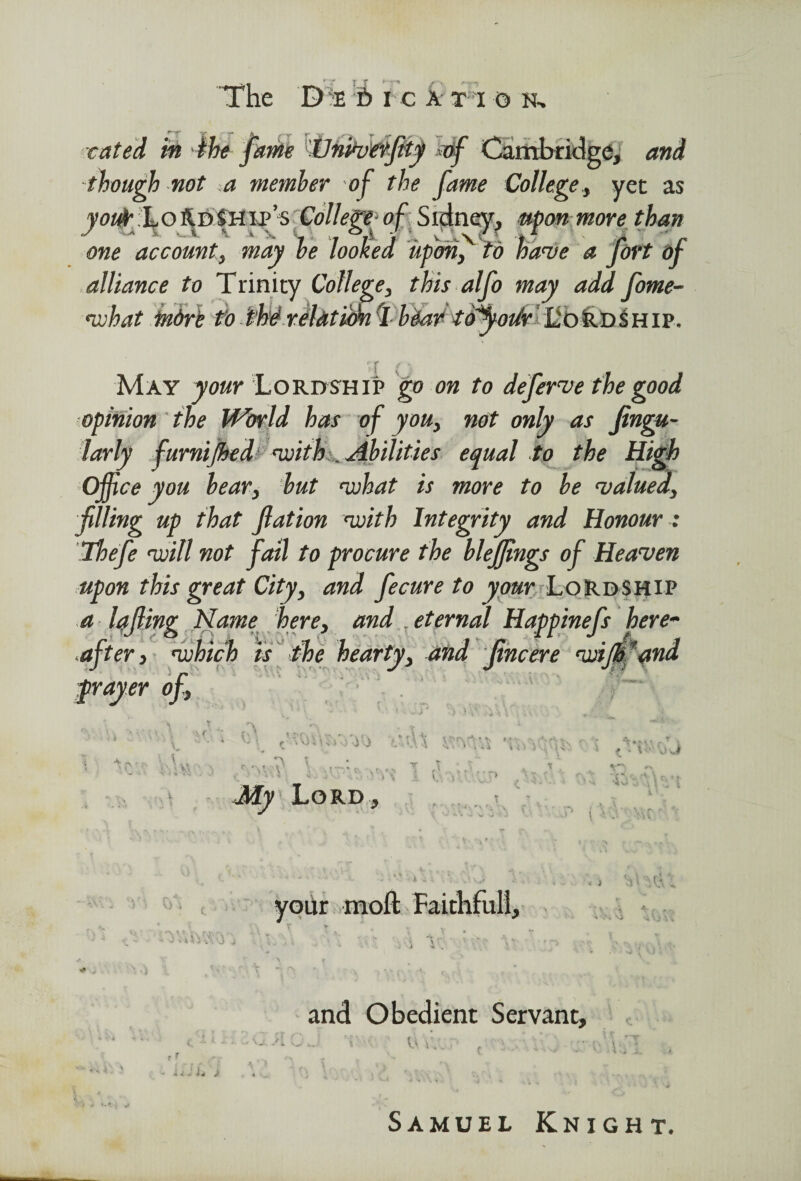 The DEDICATION.
cated in the ſame Univerſity of Cambridge, and
though not a member of the ſame College, yet as
your LORDSHIP’s College of Sidney, upon more than
one account, may be looked upon, to have a ſort of
alliance to Trinity College, this alſo may add ſome-
what more to the relation I bear to your LORDSHIP.
MAY your LORDSHIP go on to deſerve the good
opinion the World has of you, not only as ſingu-
larly furniſhed with Abilities equal to the High
Office you bear, but what is more to be valued,
filling up that ſtation with Integrity and Honour :
Theſe will not fail to procure the bleſſings of Heaven
upon this great City, and ſecure to your LORDSHIP
a laſting Name here, and eternal Happineſs here-
after, which is the hearty, and ſincere wiſh and
prayer of,
My LORD,
your moſt Faithfull,
and Obedient Servant,
SAMUEL KNIGHT.